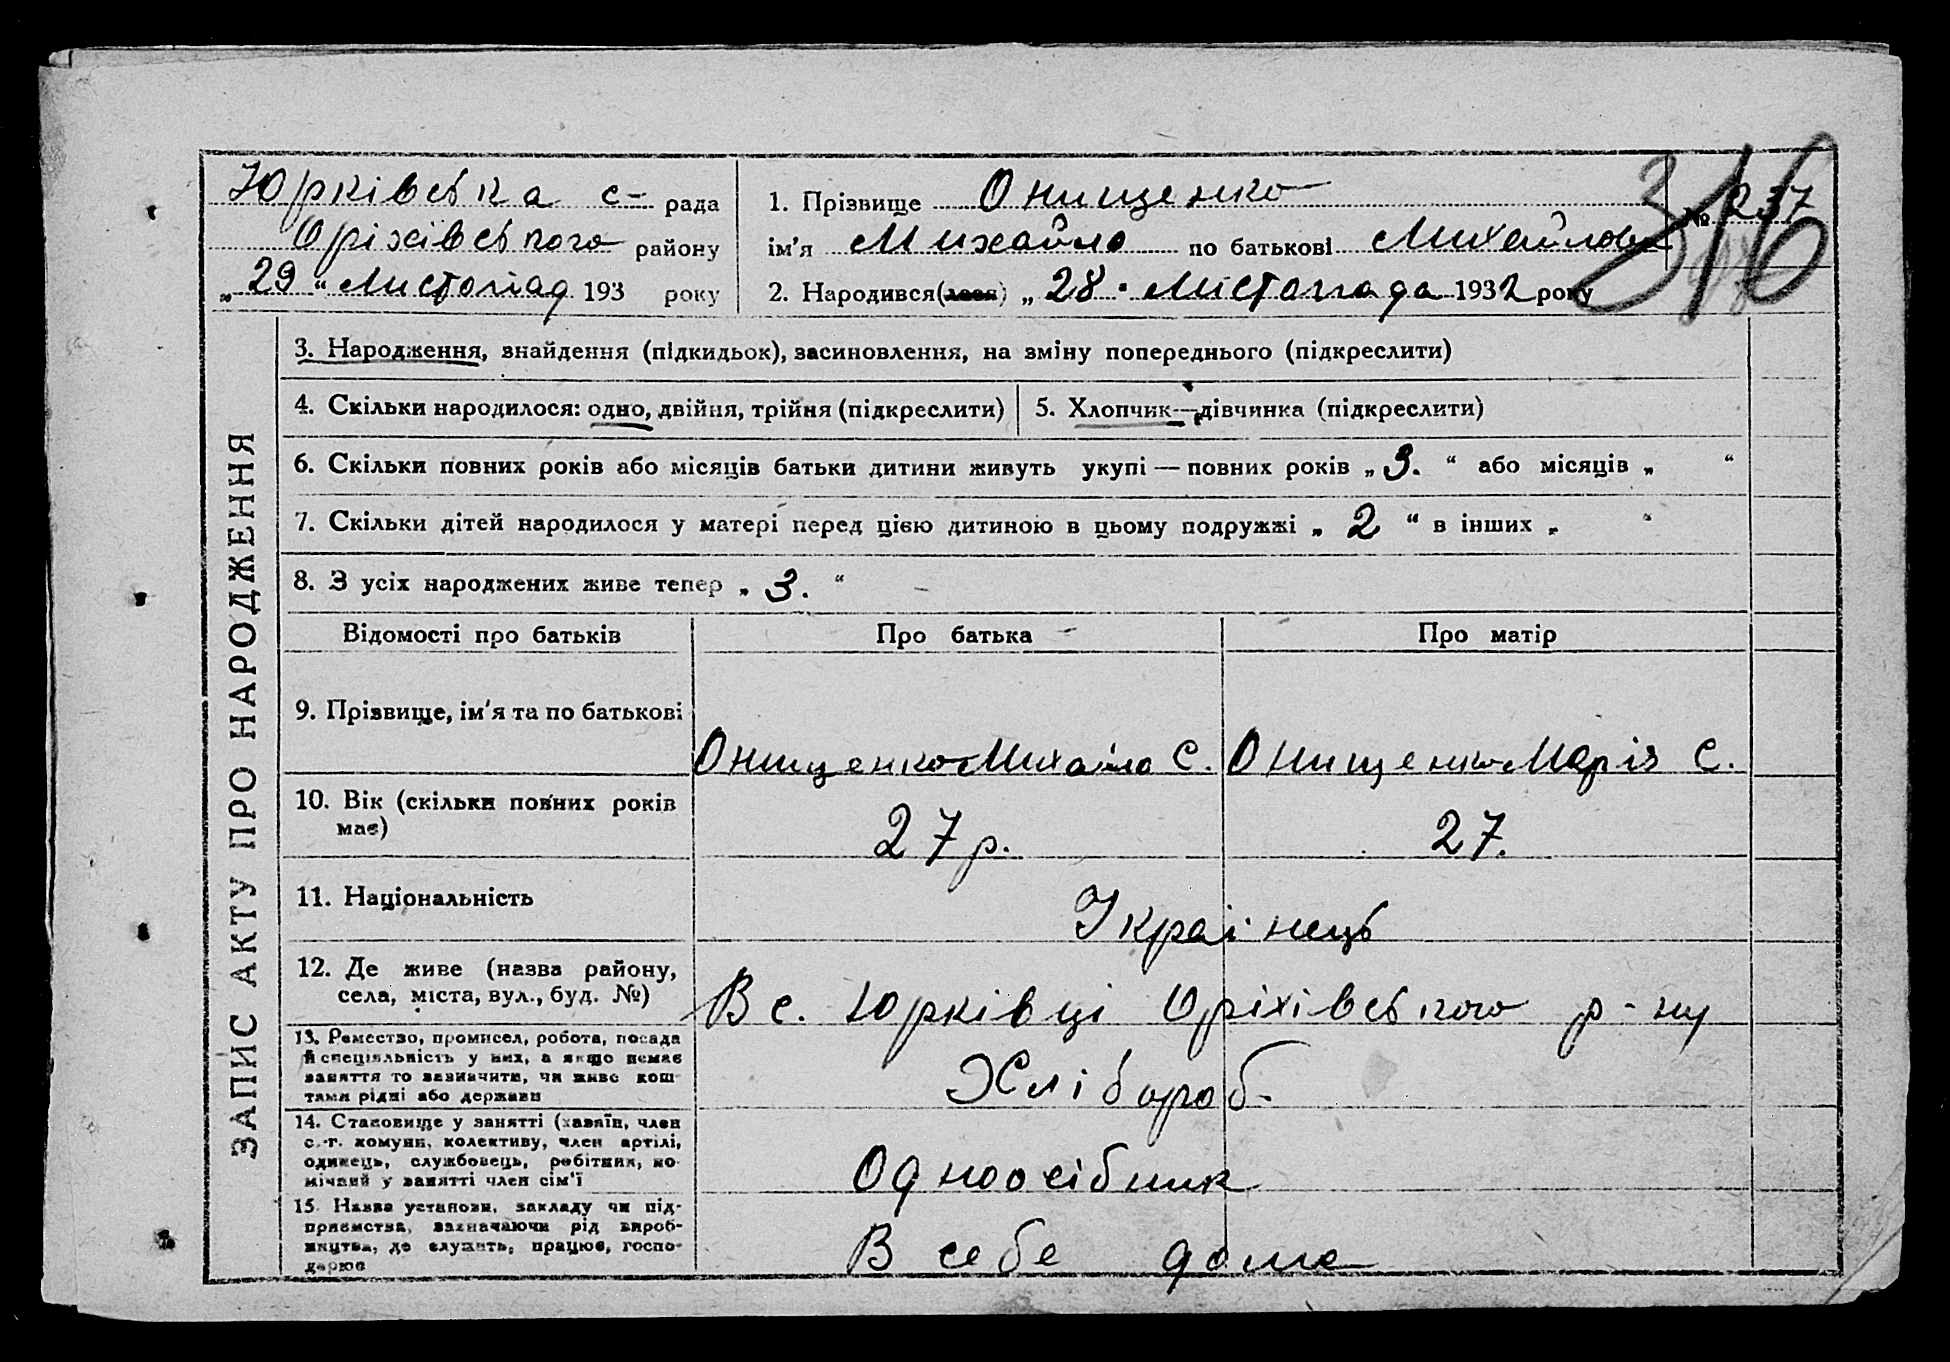 Юрківська с- рада
Оріхівського району
„ 29 “ Листопад 193 року
1. Прізвище Онищенко
№ 237
316
ім'я Михайло по батькові Михайлович
2. Народився(лася) „ 28 “ Листопада 1932 року
ЗАПИС АКТУ ПРО НАРОДЖЕННЯ
3. Народження, знайдення (підкидьок), засиновлення, на зміну попереднього (підкреслити)
4. Скільки народилося: одно, двійня, трійня (підкреслити) 5. Хлопчик—дівчинка (підкреслити)
6. Скільки повних років або місяців батьки дитини живуть укупі — повних років „ 3. “ або місяців „ “
7. Скільки дітей народилося у матері перед цією дитиною в цьому подружжі „ 2 “ в інших „ “
8. З усіх народжених живе тепер „ 3. “
Відомості про батьків Про батька Про матір
9. Прізвище, ім'я та по батькові
Онищенко Михайло С. Онищенко Марія С.
10. Вік (скільки повних років
має)
27 р. 27.
11. Національність
Українець
12. Де живе (назва району,
села, міста, вул., буд. №)
В с. Юрківці Оріхівського р-ну
13. Ремество, промисел, робота, посада
й спеціяльність у них, а якщо немає
заняття то зазначити, чи живе кош-
тами рідні або держави
Хлібороб.
14. Становище у занятті (хазяїн, член
с.-г. комуни, колективу, член артілі,
одинець, службовець, робітник, по-
мічний у занятті член сім'ї
Одноосібник
15. Назва установи, закладу чи під-
приємства, зазначаючи рід вироб-
ництва, де служить, працює, госпо-
дарює
В себе дома